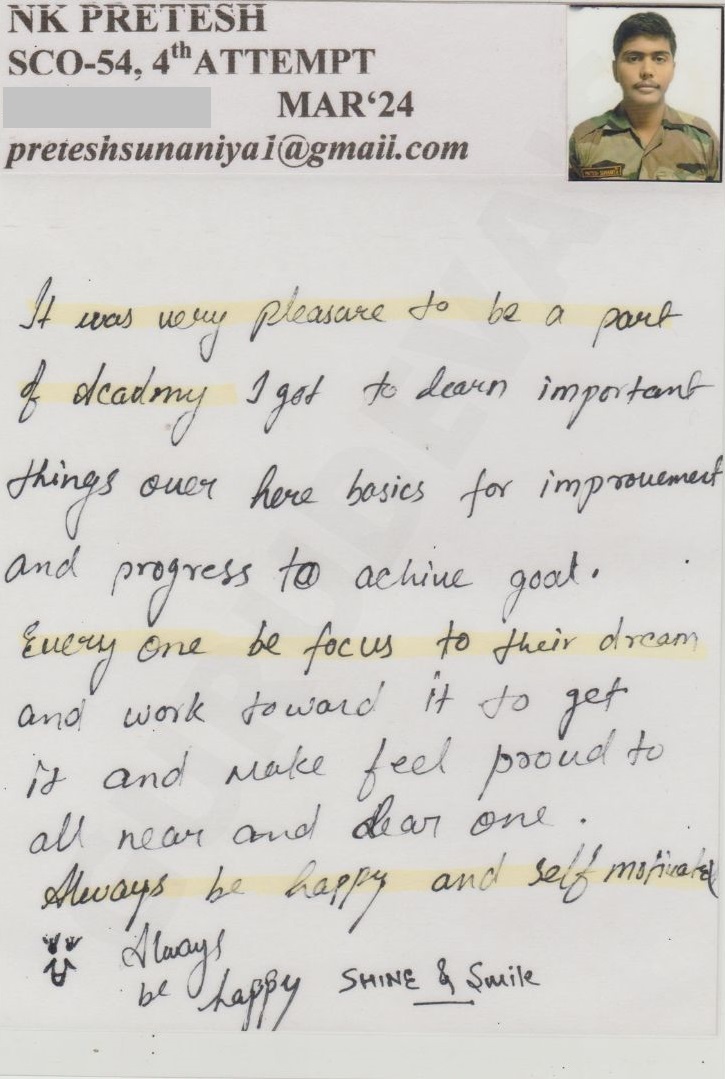 NK PRETESH
SCO-54, 4th ATTEMPT
MAR‘24
preteshsunaniya1@gmail.com
It was very pleasare to be a part
of Acadmy I got to learn important
things over here basics for improvement
and progress to achive goal.
Every one be focus to their dream
and work toward it to get
it and make feel proud to
all near and dear one.
Always be happy and self motivated
Always
be happy SHINE & Smile